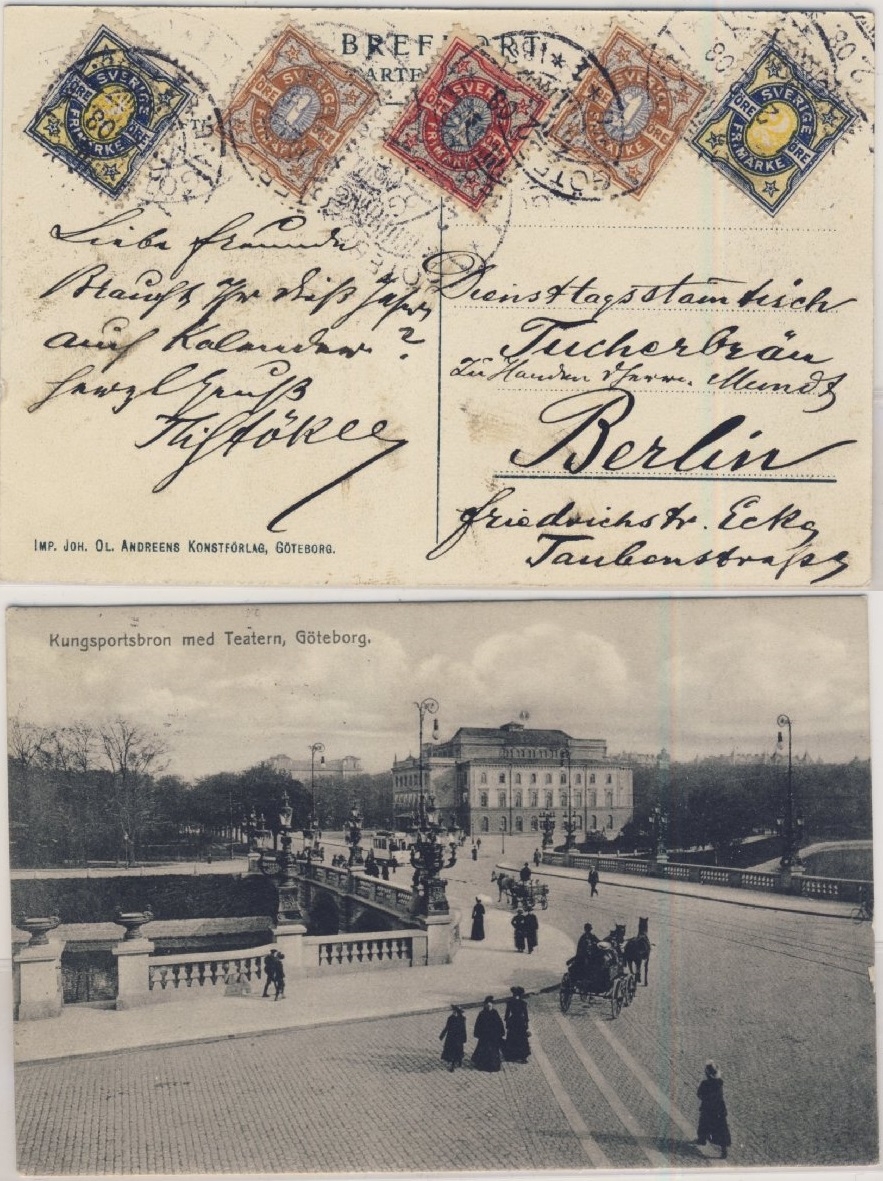 BREFKORT
SVERIGE
FRIMÄRKE
ÖRE
ÖRE
SVERIGE
ÖRE
ÖRE
SVERIGE
FRIMÄRKE
SVERIGE
ÖRE
SVERIGE
FRIMÄRKE
ÖRE
ÖRE
Liebe Freunde
Braucht Ihr dieß Jahr
auch Kalender?
herzl Gruß
Dienstagsstamtisch
Tucherbräu
zu Handen d Herrn. Mundt
Berlin
Friedrichstr. Ecke
Taubenstraße
IMP. JOH. OL. ANDREENS KONSTFÖRLAG, GÖTEBORG.
Kungsportsbron med Teatern, Göteborg.